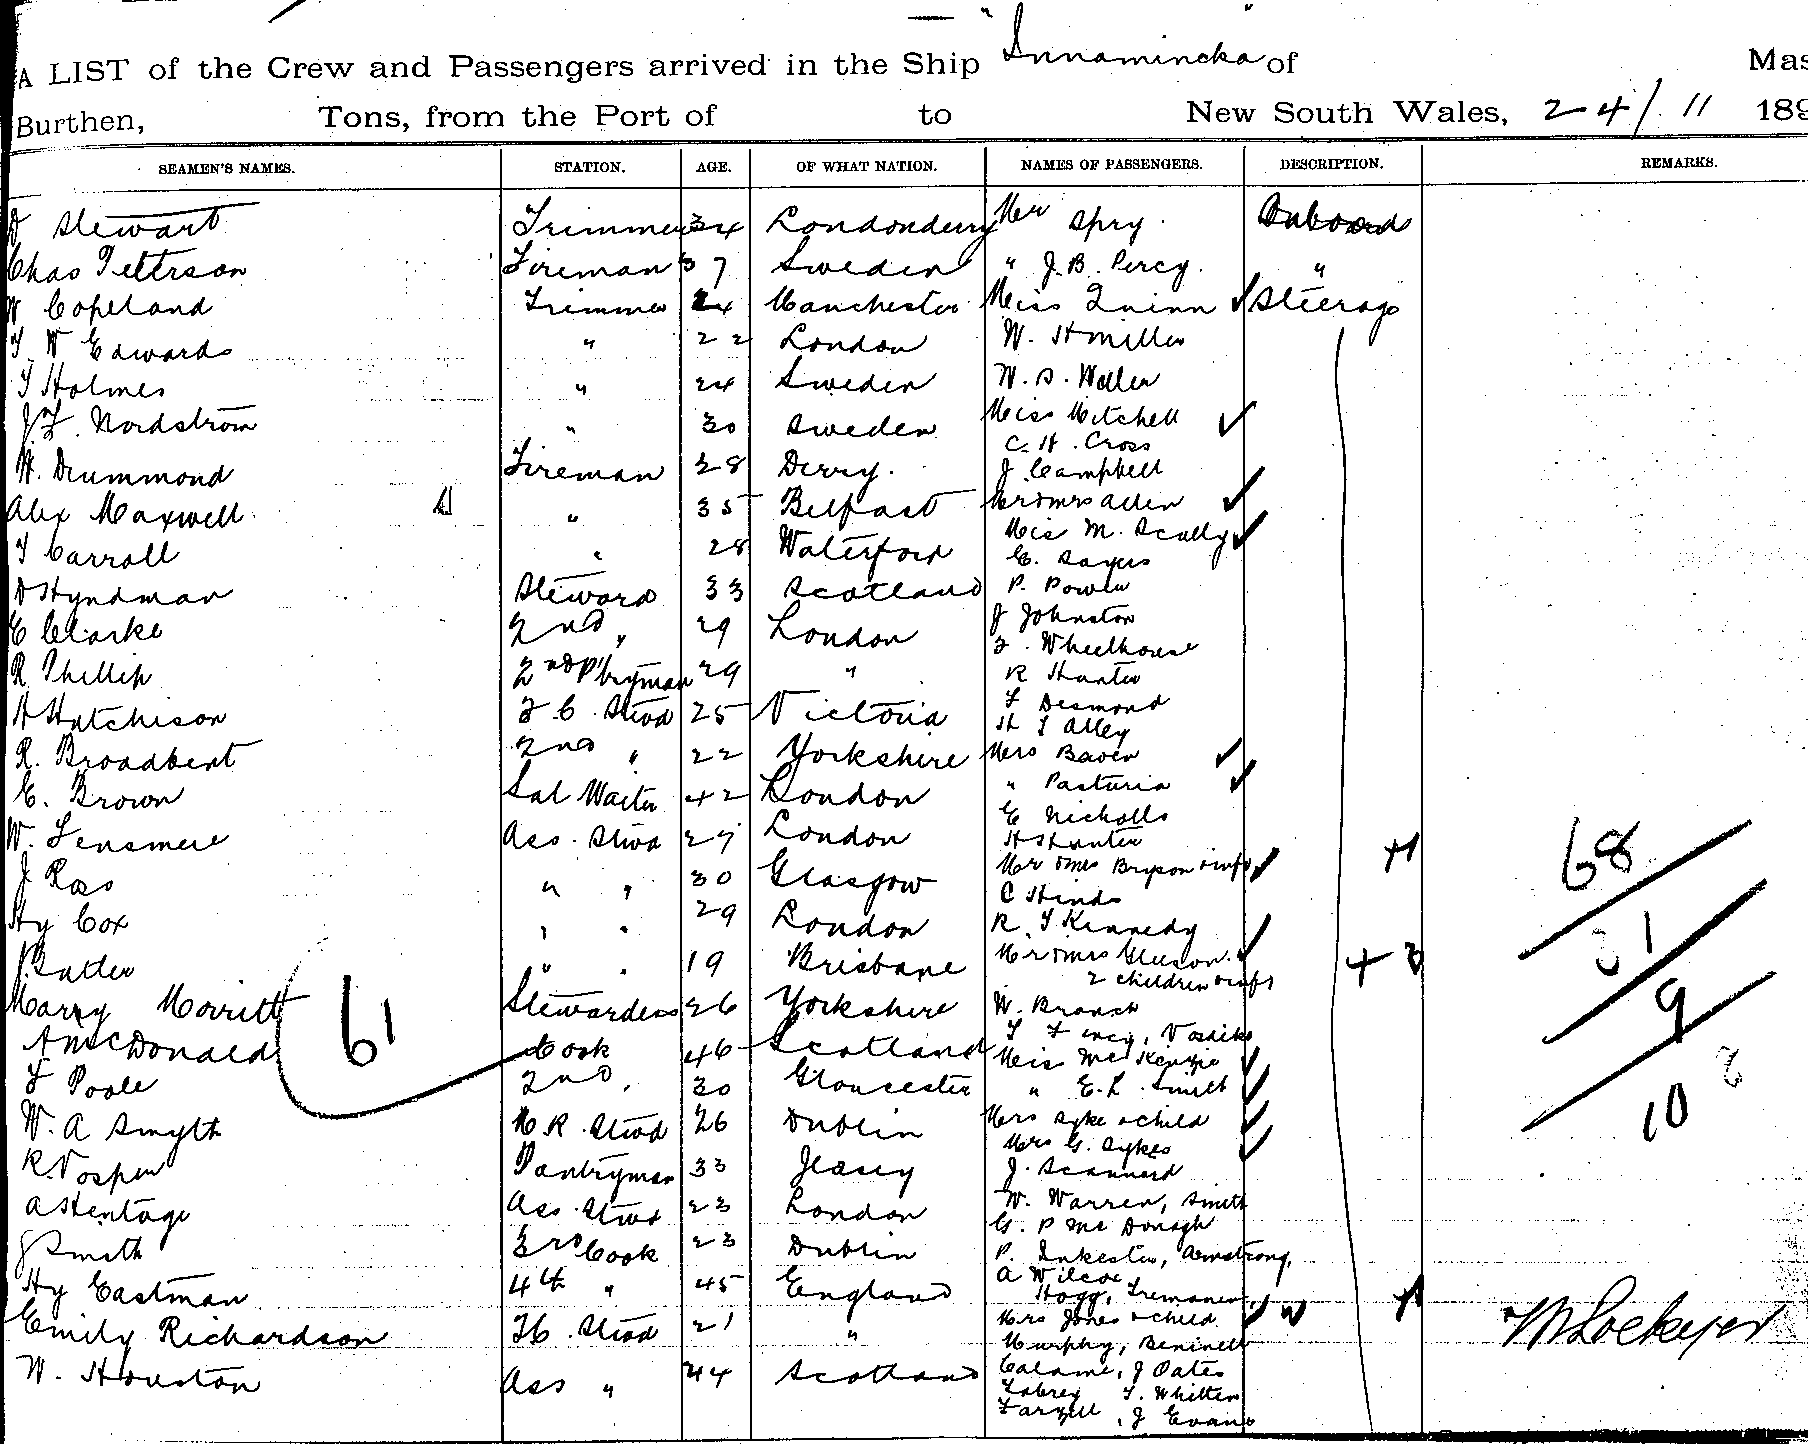 A LIST of the Crew and Passengers arrived in the Ship "Innamincka" of Mas
Burthen, Tons, from the Port of to New South Wales, 24/11 189
SEAMEN'S NAMES. STATION. AGE. OF WHAT NATION. NAMES OF PASSENGERS. DESCRIPTION. REMARKS.
D Stewart Trimmer 34 Londonderry Mr Spry Onboard
Chas Petterson Fireman 37 Sweden " J.B. Percy. "
W Copeland Trimmer 24 Manchester Miss Quinn ✓ Steerage
T W Edwards " 22 London W. H Miller
T Holmes " 24 Sweden W. S. Waller
J.F. Nordstrom " 30 Sweden Miss Mitchell ✓
C. H. Cross
H. Drummond Fireman 28 Derry. J Campbell
Alex Maxwell " 35 Belfast Mr & Mrs Allen ✓
Miss M. Scully ✓
T Carroll " 28 Waterford E. Sayers
D Hyndman Steward 33 Scotland P. Power
E Clarke 2nd " 29 London J Johnston
F. Wheelhouse
R Phillip 2nd Ptryman 29 " R Hunter
F Desmond
H Hutchison F.C. Stwd 25 Victoria H T Alley
R. Broadbent 2nd " 22 Yorkshire Mrs Baven ✓
E. Brown Sal Waiter 42 London " Pasturia ✓
E Nicholls
W. Lensmere Ass. Stwd 27 London H Hunter
Mr & Mrs Bryson & inft ✓
J Ross " " 30 Glasgow C Hinds
Hy Cox " " 29 London R. T Kennedy
J Butler " " 19 Brisbane Mr & Mrs Gleeson ✓
2 children & inft
Harry Merritt Stewardess 26 Yorkshire W. Branch
A McDonald Cook 46 Scotland Miss McKenzie ✓
F Poole 2nd " 30 Gloucester " E.L. Smith ✓
W. A Smyth M R. Stwd 26 Dublin Mrs Syke & child ✓
Mrs G. Sykes ✓
R Vosper Pantryman 33 Jersey J. Scannard
A Hentage Ass. Stwd 23 London W. Warren, Smith
G. P McDonagh
J Smith 3rd Cook 23 Dublin P. Inkester, Armstrong,
A Wilcox
Hy Eastman 4th " 45 England Hogg, Tremaner
Emily Richardson FC. Stwd 21 " Mrs Jones & child ✓
Murphy,
W. Houston Ass " 44 Scotland Calame, J Oates
T. Whitten
Farzell, J Evans
61
68
31
9
10